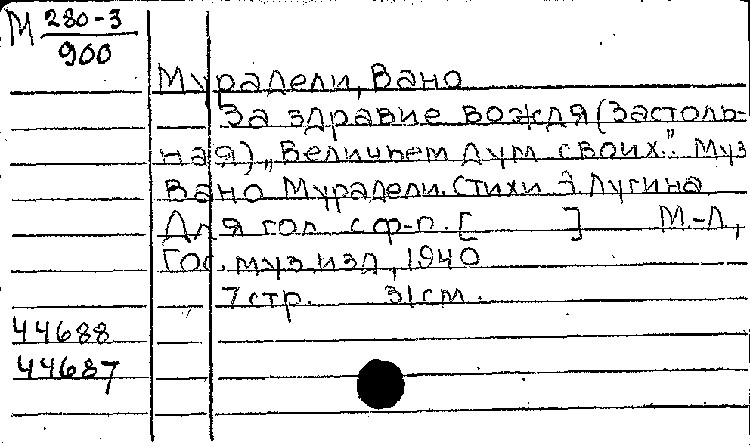 М 280-3
900
Мурадели, Вано
За здравие вождя (Застоль-
ная) „Величьем дум своих." Муз
Вано Мурадели. Стихи Я. Лугина
Для гол. с ф-п. [ ] М.-Л,
Гос. муз. изд, 1940
7 стр. 31 см.
44688
44687